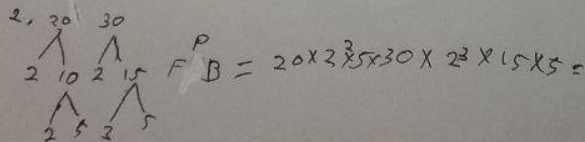 2. 20 30
2 10 2 15 FPB = 20 × 2³ × 5 × 30 × 2³ × 15 × 5 =
2 5 3 5